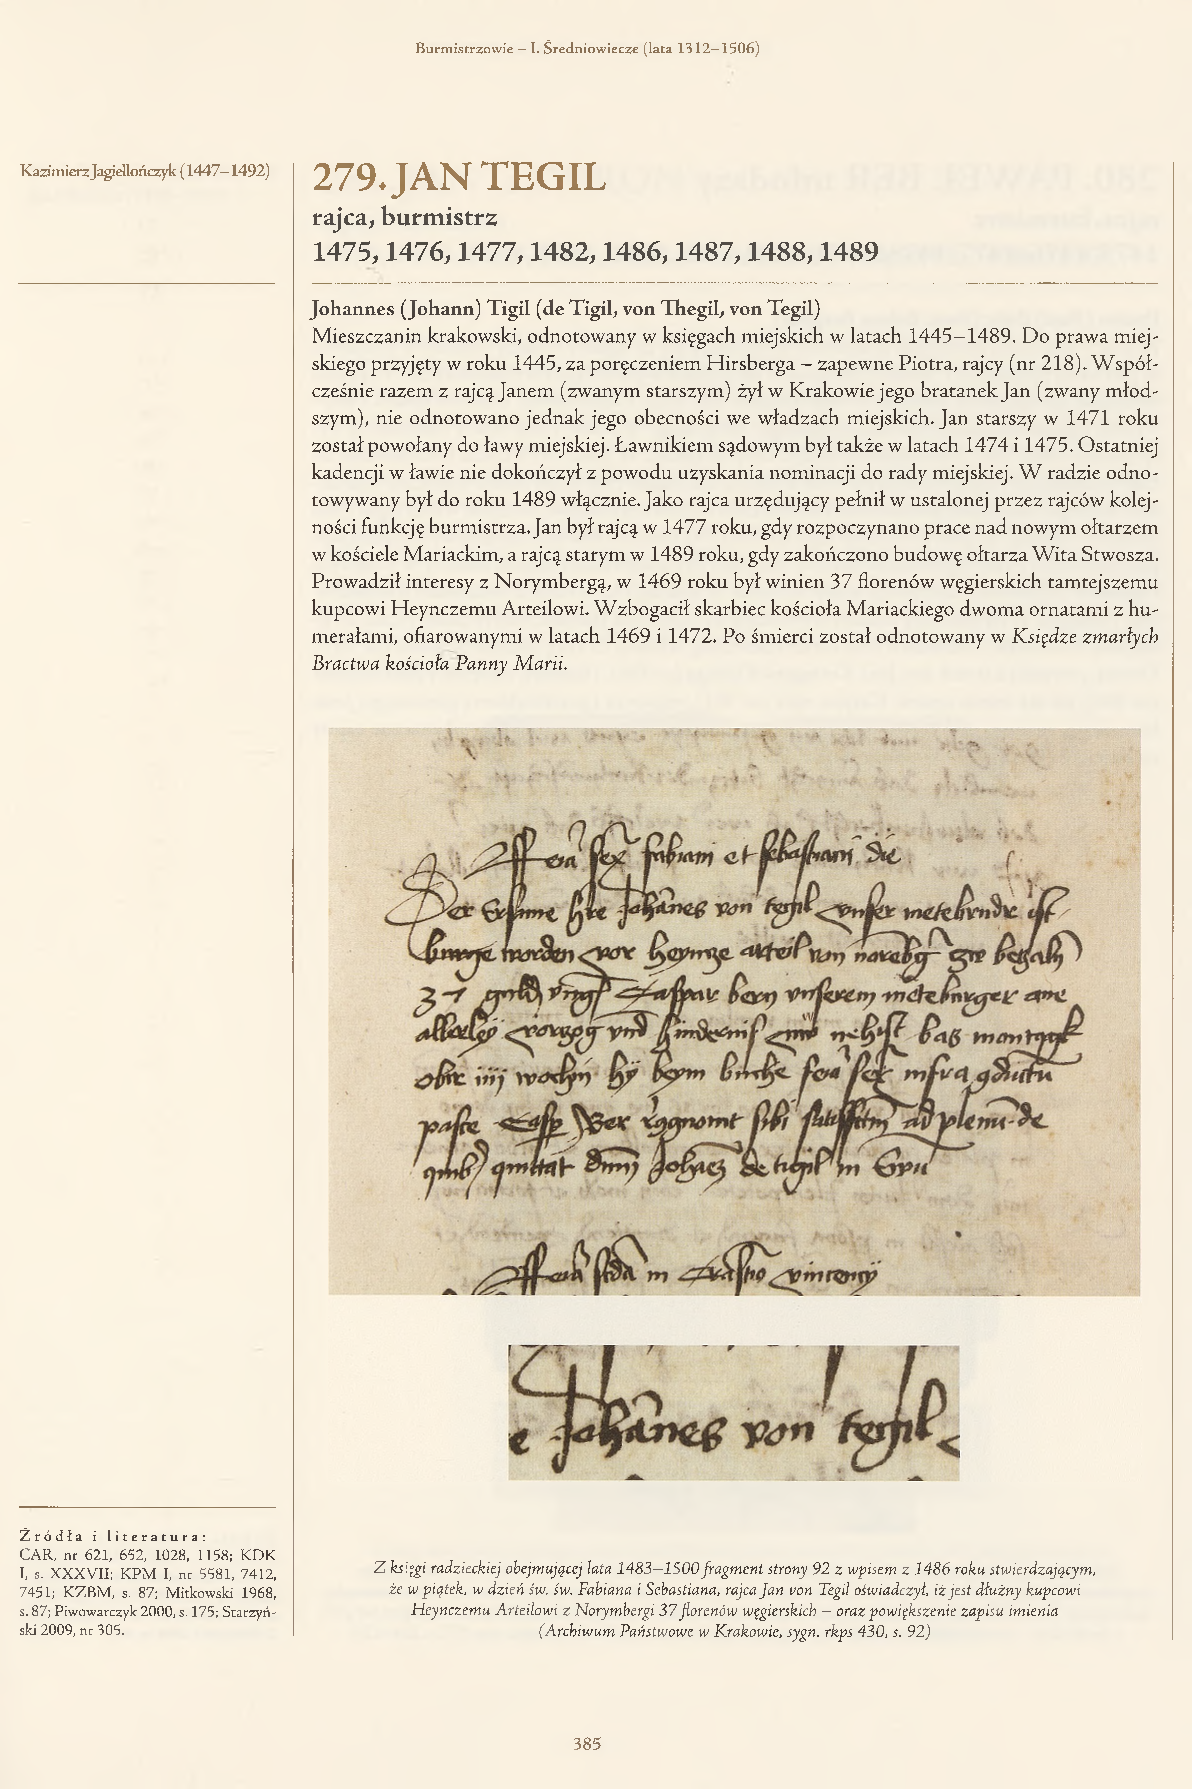 Burmistrzowie – I. Średniowiecze (lata 1312–1506)
Kazimierz Jagiellończyk (1447–1492)
279. JAN TEGIL
rajca, burmistrz
1475, 1476, 1477, 1482, 1486, 1487, 1488, 1489
Johannes (Johann) Tigil (de Tigil, von Thegil, von Tegil)
Mieszczanin krakowski, odnotowany w księgach miejskich w latach 1445–1489. Do prawa miej-
skiego przyjęty w roku 1445, za poręczeniem Hirsberga – zapewne Piotra, rajcy (nr 218). Współ-
cześnie razem z rajcą Janem (zwanym starszym) żył w Krakowie jego bratanek Jan (zwany młod-
szym), nie odnotowano jednak jego obecności we władzach miejskich. Jan starszy w 1471 roku
został powołany do ławy miejskiej. Ławnikiem sądowym był także w latach 1474 i 1475. Ostatniej
kadencji w ławie nie dokończył z powodu uzyskania nominacji do rady miejskiej. W radzie odno-
towywany był do roku 1489 włącznie. Jako rajca urzędujący pełnił w ustalonej przez rajców kolej-
ności funkcję burmistrza. Jan był rajcą w 1477 roku, gdy rozpoczynano prace nad nowym ołtarzem
w kościele Mariackim, a rajcą starym w 1489 roku, gdy zakończono budowę ołtarza Wita Stwosza.
Prowadził interesy z Norymbergą, w 1469 roku był winien 37 florenów węgierskich tamtejszemu
kupcowi Heynczemu Arteilowi. Wzbogacił skarbiec kościoła Mariackiego dwoma ornatami z hu-
merałami, ofiarowanymi w latach 1469 i 1472. Po śmierci został odnotowany w Księdze zmarłych
Bractwa kościoła Panny Marii.
fabiani et sebastiani die
Der Ersame h're Johānes von tegil vnser metebrudr ist
burge worden vor heyncze arteil von
37 Caspar bern vnserem meteburger ane
vnd hindernis
wochin hy beym buche infra
pasce ad plenū de
quittat de tigil in
in Crastīo vincencÿ
e Johānes von tegil
Źródła i literatura:
CAR, nr 621, 652, 1028, 1158; KDK
I, s. XXXVII; KPM I, nr 5581, 7412,
7451; KZBM, s. 87; Mitkowski 1968,
s. 87; Piwowarczyk 2000, s. 175; Starzyń-
ski 2009, nr 305.
Z księgi radzieckiej obejmującej lata 1483–1500 fragment strony 92 z wpisem z 1486 roku stwierdzającym,
że w piątek, w dzień św. św. Fabiana i Sebastiana, rajca Jan von Tegil oświadczył, iż jest dłużny kupcowi
Heynczemu Arteilowi z Norymbergi 37 florenów węgierskich – oraz powiększenie zapisu imienia
(Archiwum Państwowe w Krakowie, sygn. rkps 430, s. 92)
385